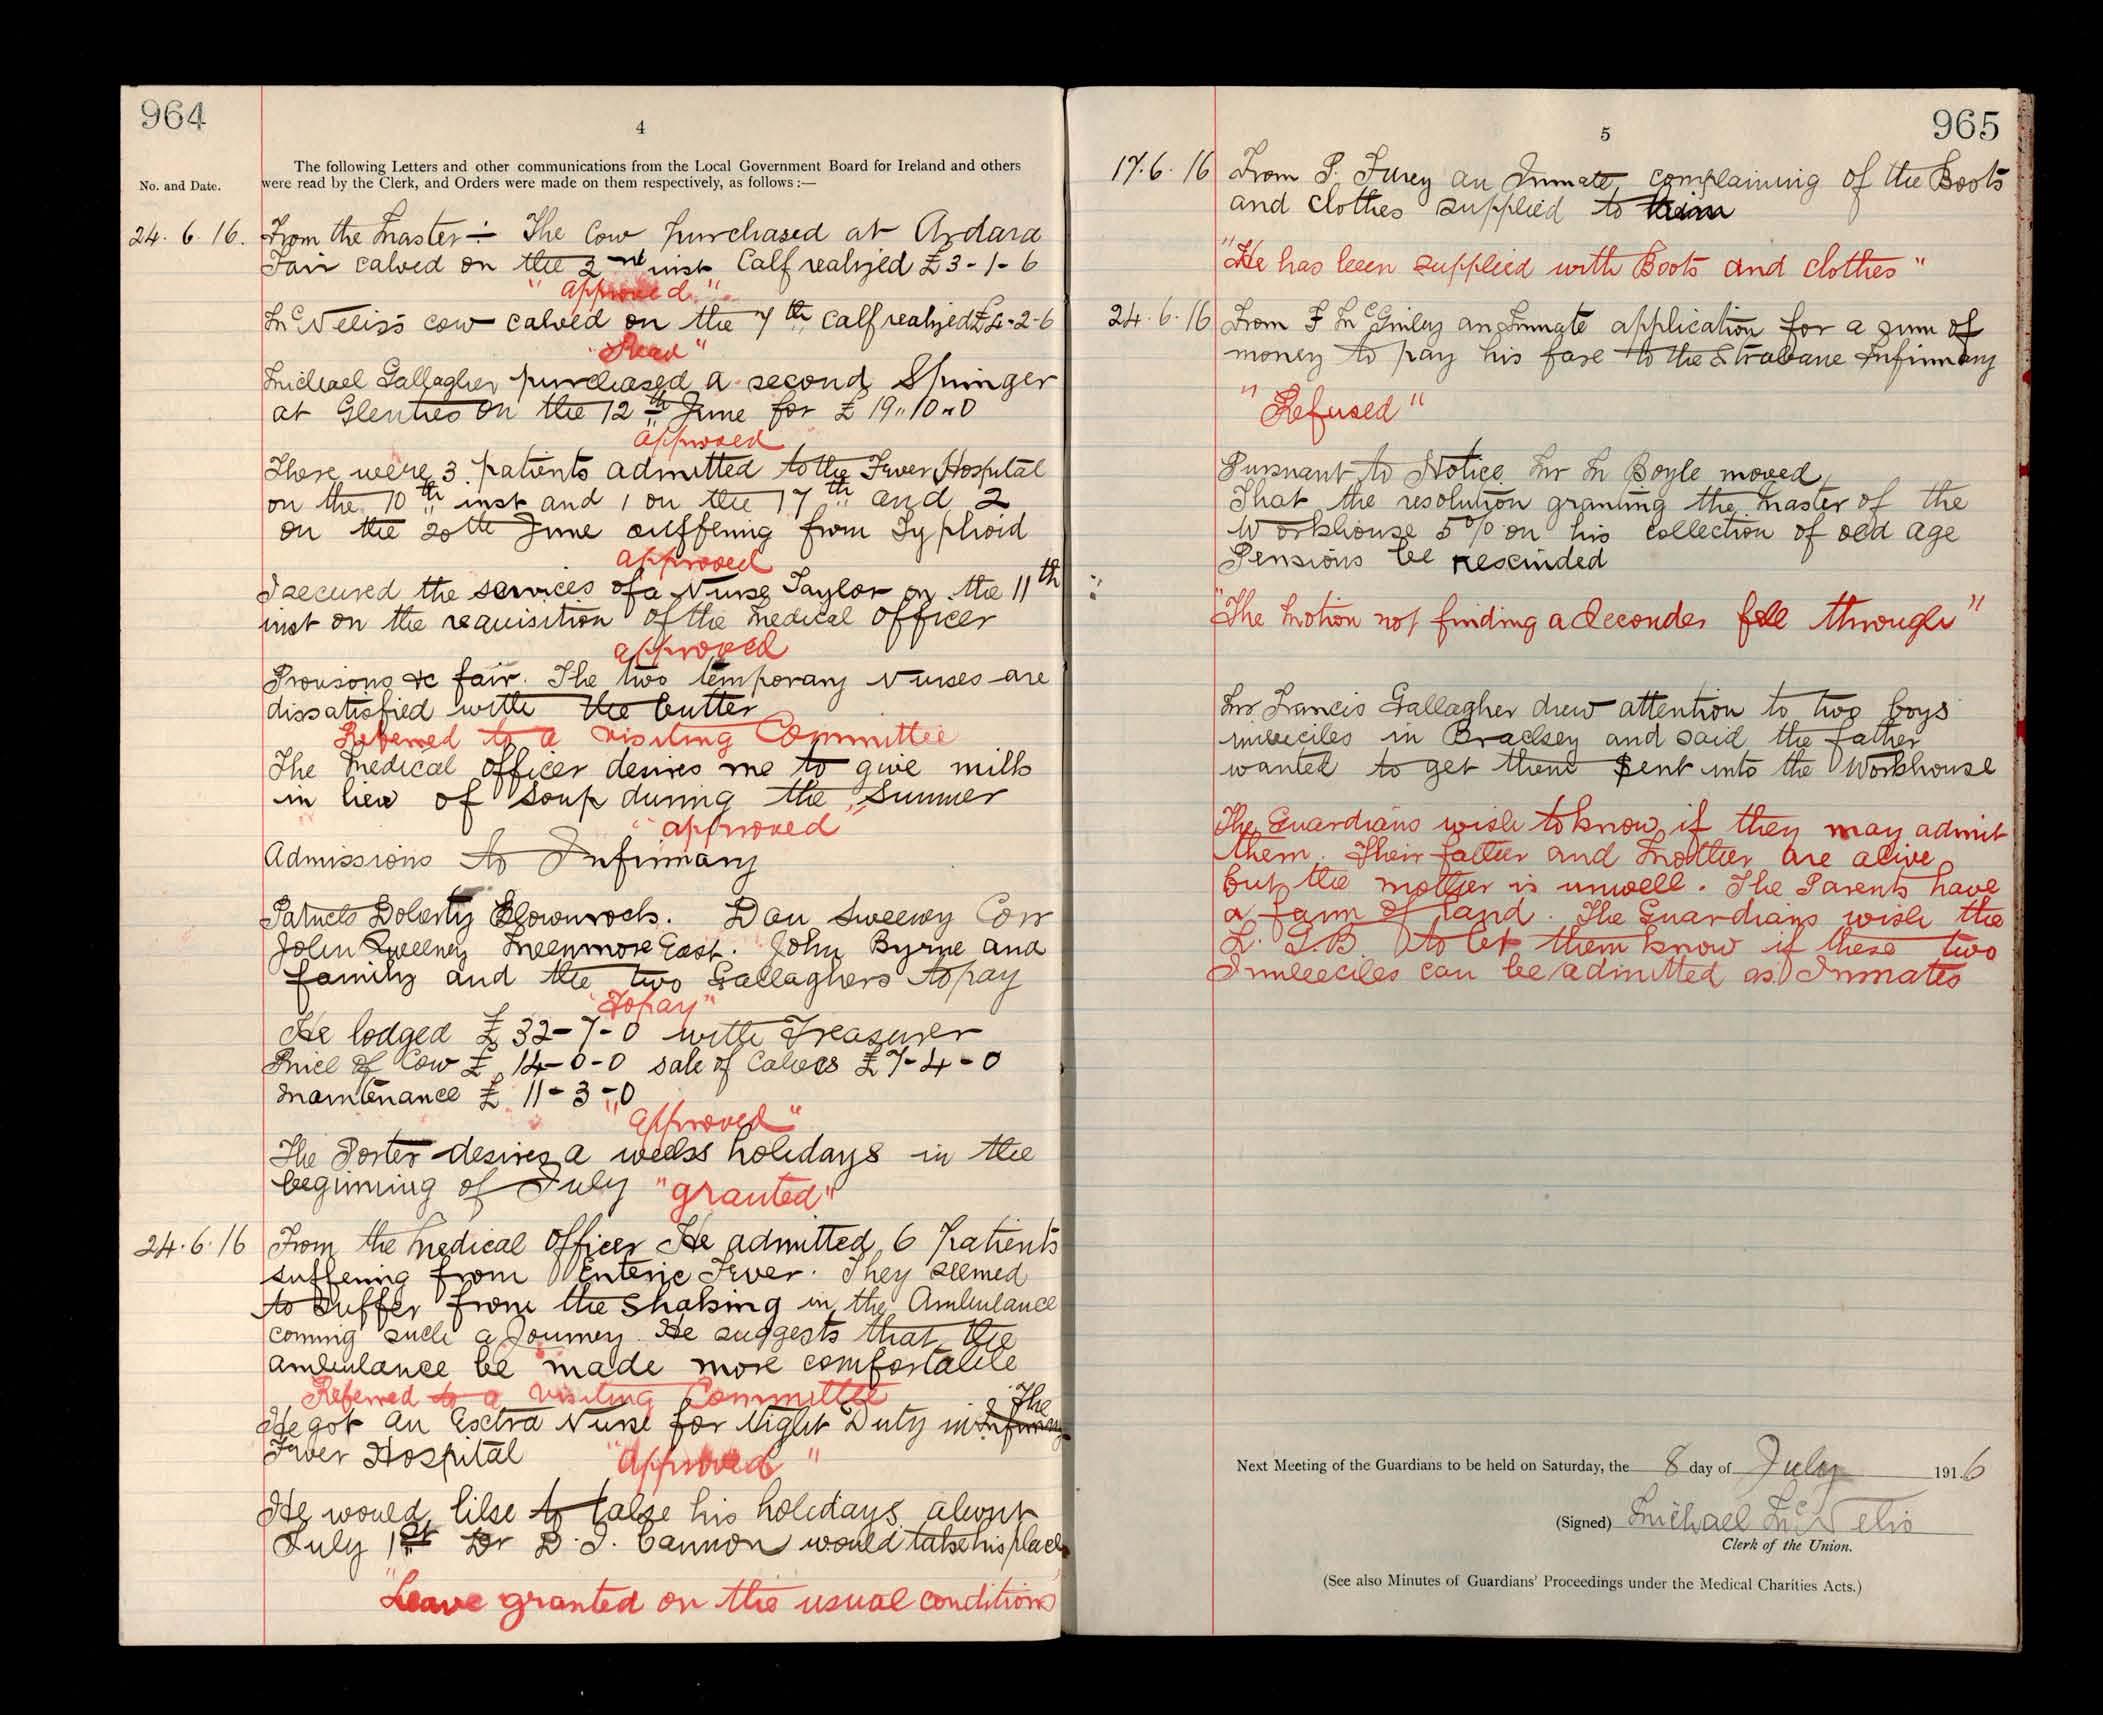 964
4
The following Letters and other communications from the Local Government Board for Ireland and others
No. and Date.
were read by the Clerk, and Orders were made on them respectively, as follows :—
24. 6. 16. From the Master :- The Cow purchased at Ardara
Fair calved on the 2nd inst Calf realized £3-1-6
"approved"
McNelis's cow calved on the 7th calf realized £4-2-6
"Read"
Michael Gallagher purchased a second Springer
at Glenties on the 12th June for £ 19"10"0
approved
There were 3 patients admitted to the Fever Hospital
on the 10th inst and 1 on the 17th and 2
on the 20th June suffering from Typhoid
approved
I secured the services of a Nurse Taylor on the 11th
inst on the requisition of the Medical Officer
approved
Provisons &c fair. The two temporary Nurses are
dissatisfied with the butter
Referred to a Visiting Committee
The Medical Officer desires me to give milk
in lieu of Soup during the Summer
"approved"
Admissions to Infirmary
Patrick Doherty. Dan Sweeney Corr
John Sweeney Meenmore East. John Byrne and
family and the two Gallaghers to pay
"To pay"
He lodged £ 32-7-0 with Treasurer
Price of Cow £ 14-0-0 sale of Calves £7-4-0
Maintenance £ 11-3-0
"approved"
The Porter desires a weeks holidays in the
beginning of July "granted"
24.6.16 From the Medical Officer He admitted 6 Patients
suffering from Enteric Fever. They seemed
to suffer from the shaking in the Ambulance
coming such a Journey. He suggests that the
ambulance be made more comfortable
Referred to a Visiting Committee
He got an Extra Nurse for Night Duty in The Infirmary
Fever Hospital "Approved"
He would like to take his holidays about
July 1st Dr D. I. Cannon would take his place
"Leave granted on the usual conditions
965
5
17.6.16 From P. Furey an Inmate, complaining of the Boots
and clothes supplied to
"He has been supplied with Boots and clothes"
24.6.16 From F McGinley an Inmate application for a sum of
money to pay his fare to the Strabane Infirmary
"Refused"
Pursuant to Notice Mr M Boyle moved
That the resolution granting the Master of the
Workhouse 5% on his collection of old age
Pensions be rescinded
"The Motion not finding a Seconder fell through"
Mr Francis Gallagher drew attention to two boys
imbeciles in and said the father
wanted to get them sent into the Workhouse
The Guardians wish to know if they may admit
them. Their father and Mother are alive
but the mother is unwell. The Parents have
a farm of land. The Guardians wish the
L. G. B. to let them know if these two
Imbeciles can be admitted as Inmates
Next Meeting of the Guardians to be held on Saturday, the 8 day of July 1916
(Signed) Michael McNelis
Clerk of the Union.
(See also Minutes of Guardians' Proceedings under the Medical Charities Acts.)